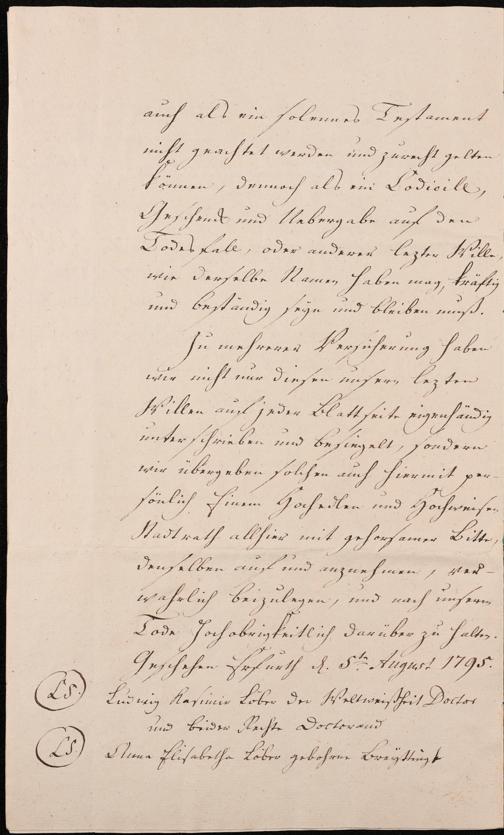 auch als ein solennes Testament
nicht geachtet werden und zurecht gelten
können, dennoch als ein Codicill,
Geschenk und Uebergabe auf den
Todesfall, oder anderer lezter Wille,
wie derselbe Namen haben mag, kräftig
und beständig seyn und bleiben muß.
Zu mehrerer Versicherung haben
wir nicht nur diesen unsern lezten
Willen auf jeder Blattseite eigenhändig
unterschrieben und besiegelt, sondern
wir übergeben solchen auch hiermit per-
sönlich Einem Hochedlen und Hochweisen
Stadtrath allhier mit gehorsamer Bitte,
denselben auf und anzunehmen, ver-
wahrlich beizulegen, und nach unserm
Tode hochobrigkeitlich darüber zu halten.
Geschehen Erfurth d. 5tn August 1795.
LS. Ludwig Kasimir Löber der Weltweißheit Doctor
und beider Rechte Doctorand
LS. Anna Elisabetha Löber gebohrne